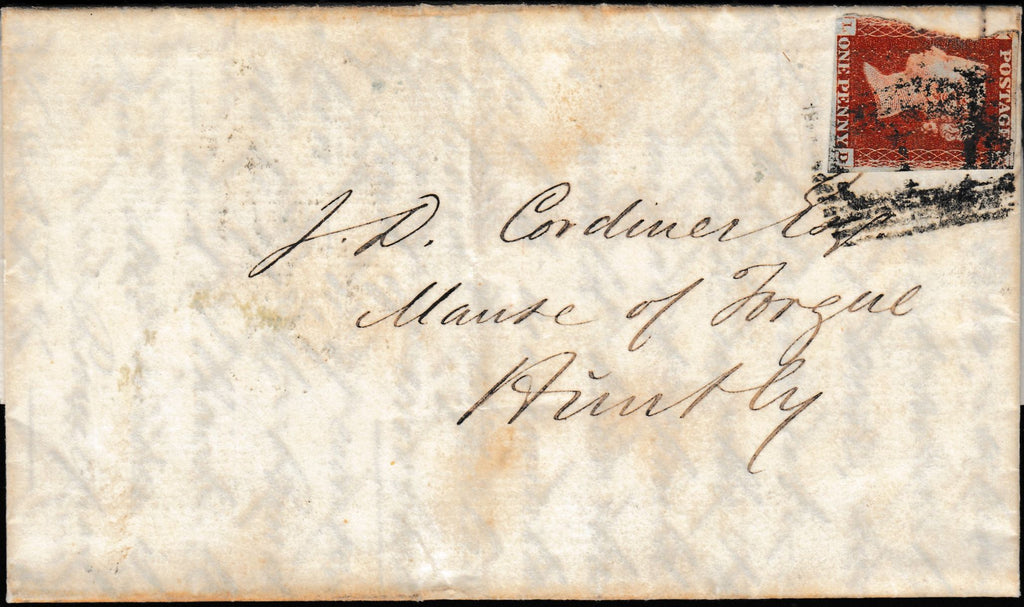 POSTAGE
ONE PENNY
I D
J. D. Cordiner Esq.
Manse of Forgue
Huntly